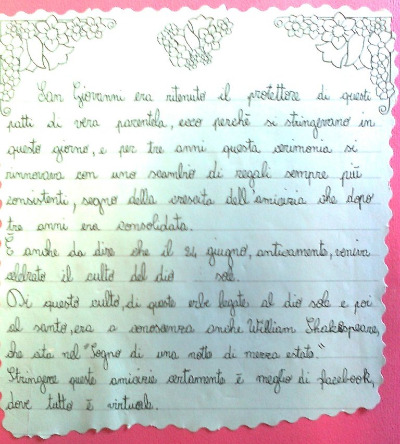 San Giovanni era ritenuto il protettore di questi
patti di vera parentela, ecco perchè si stringevano in
questo giorno, e per tre anni questa cerimonia si
rinnovava con uno scambio di regali sempre più
consistenti, segno della crescita dell'amicizia che dopo
tre anni era consolidata.
È anche da dire che il 24 giugno, anticamente, veniva
celebrato il culto del dio sole.
Di questo culto, di queste erbe legate al dio sole e poi
al santo, era a conoscenza anche William Shakespeare,
che cita nel "Sogno di una notte di mezza estate."
Stringere queste amicizie certamente è meglio di facebook,
dove tutto è virtuale.